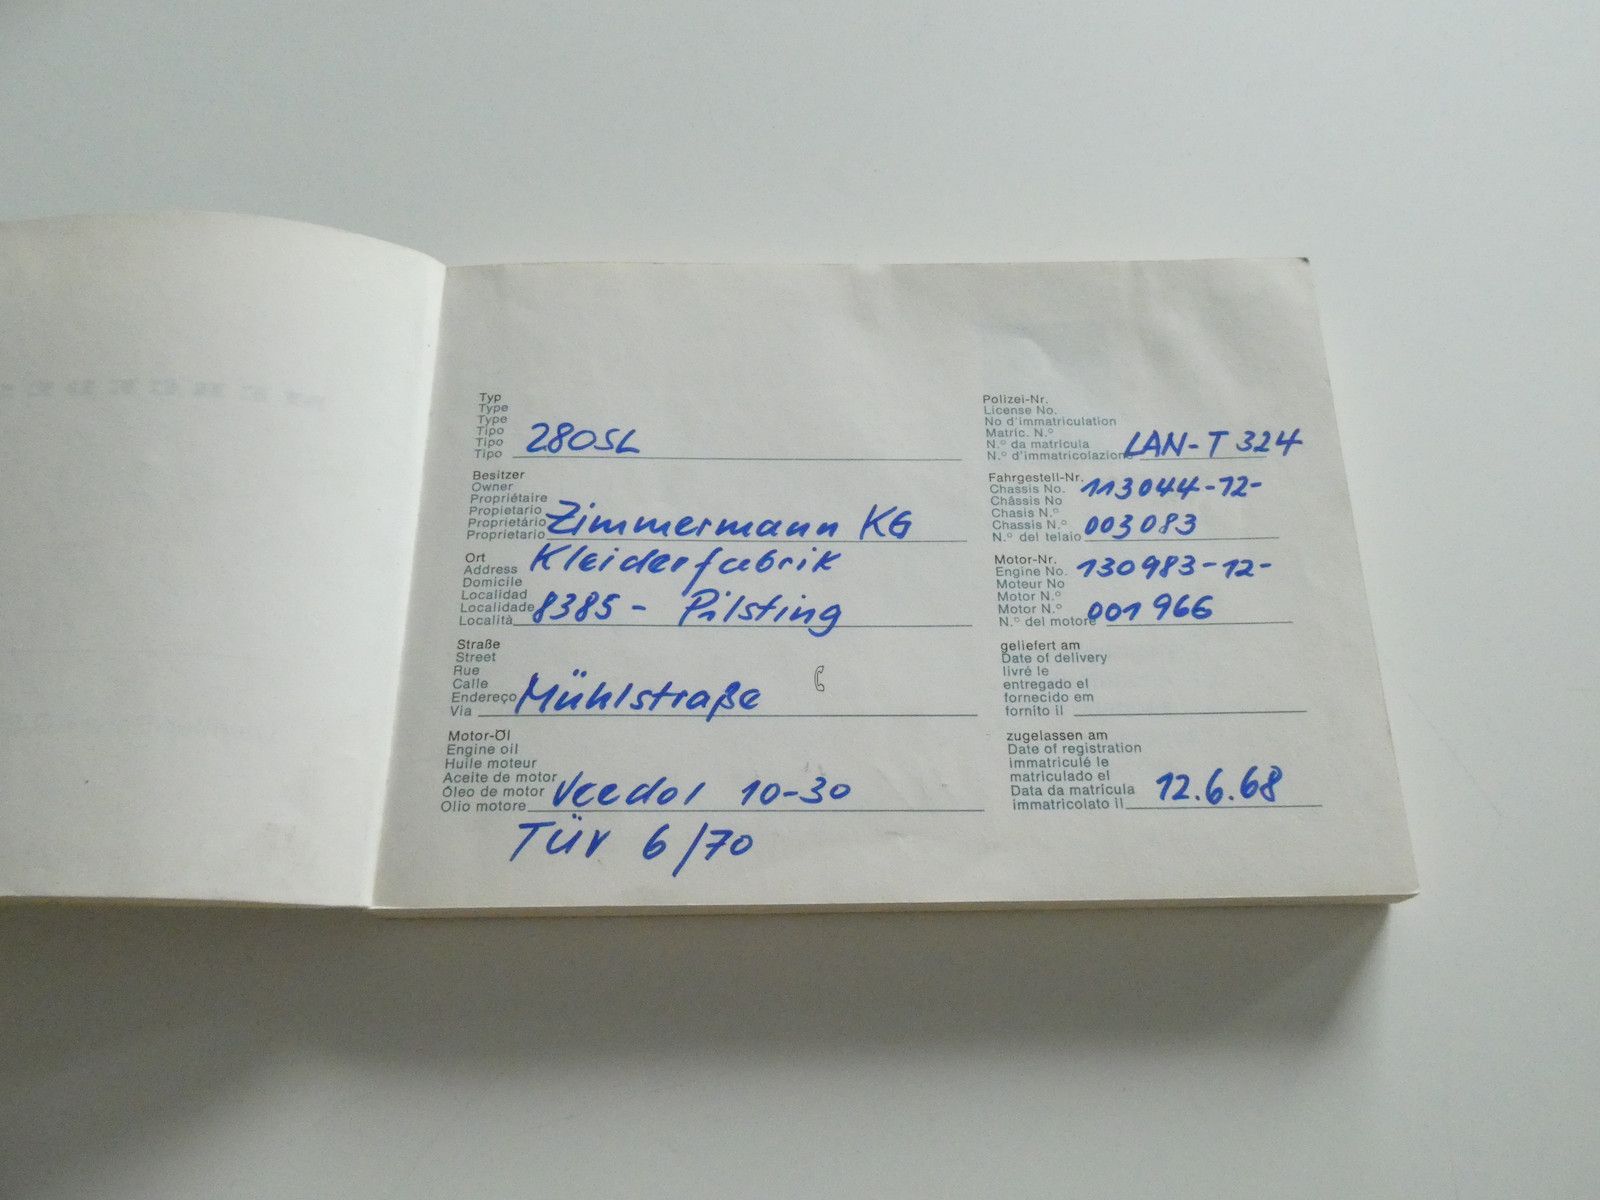 Typ
Type
Type
Tipo
Tipo
Tipo 280SL
Besitzer
Owner
Propriétaire
Propietario
Proprietário
Proprietario Zimmermann KG
Ort Kleiderfabrik
Address
Domicile
Localidad
Localidade 8385 - Pilsting
Località
Straße
Street
Rue
Calle
Endereço Mühlstraße
Via
Motor-Öl
Engine oil
Huile moteur
Aceite de motor
Óleo de motor Veedol 10-30
Olio motore
TÜV 6/70
Polizei-Nr.
License No.
No d'immatriculation
Matric. N.º
N.º da matrícula LAN-T 324
N.º d'immatricolazione
Fahrgestell-Nr.
Chassis No. 113044-12-
Châssis No
Chasis N.º
Chassis N.º 003083
N.º del telaio
Motor-Nr.
Engine No. 130983-12-
Moteur No
Motor N.º
Motor N.º 001966
N.º del motore
geliefert am
Date of delivery
livré le
entregado el
fornecido em
fornito il
zugelassen am
Date of registration
immatriculé le
matriculado el
Data da matrícula 12.6.68
immatricolato il
MERCEDES-